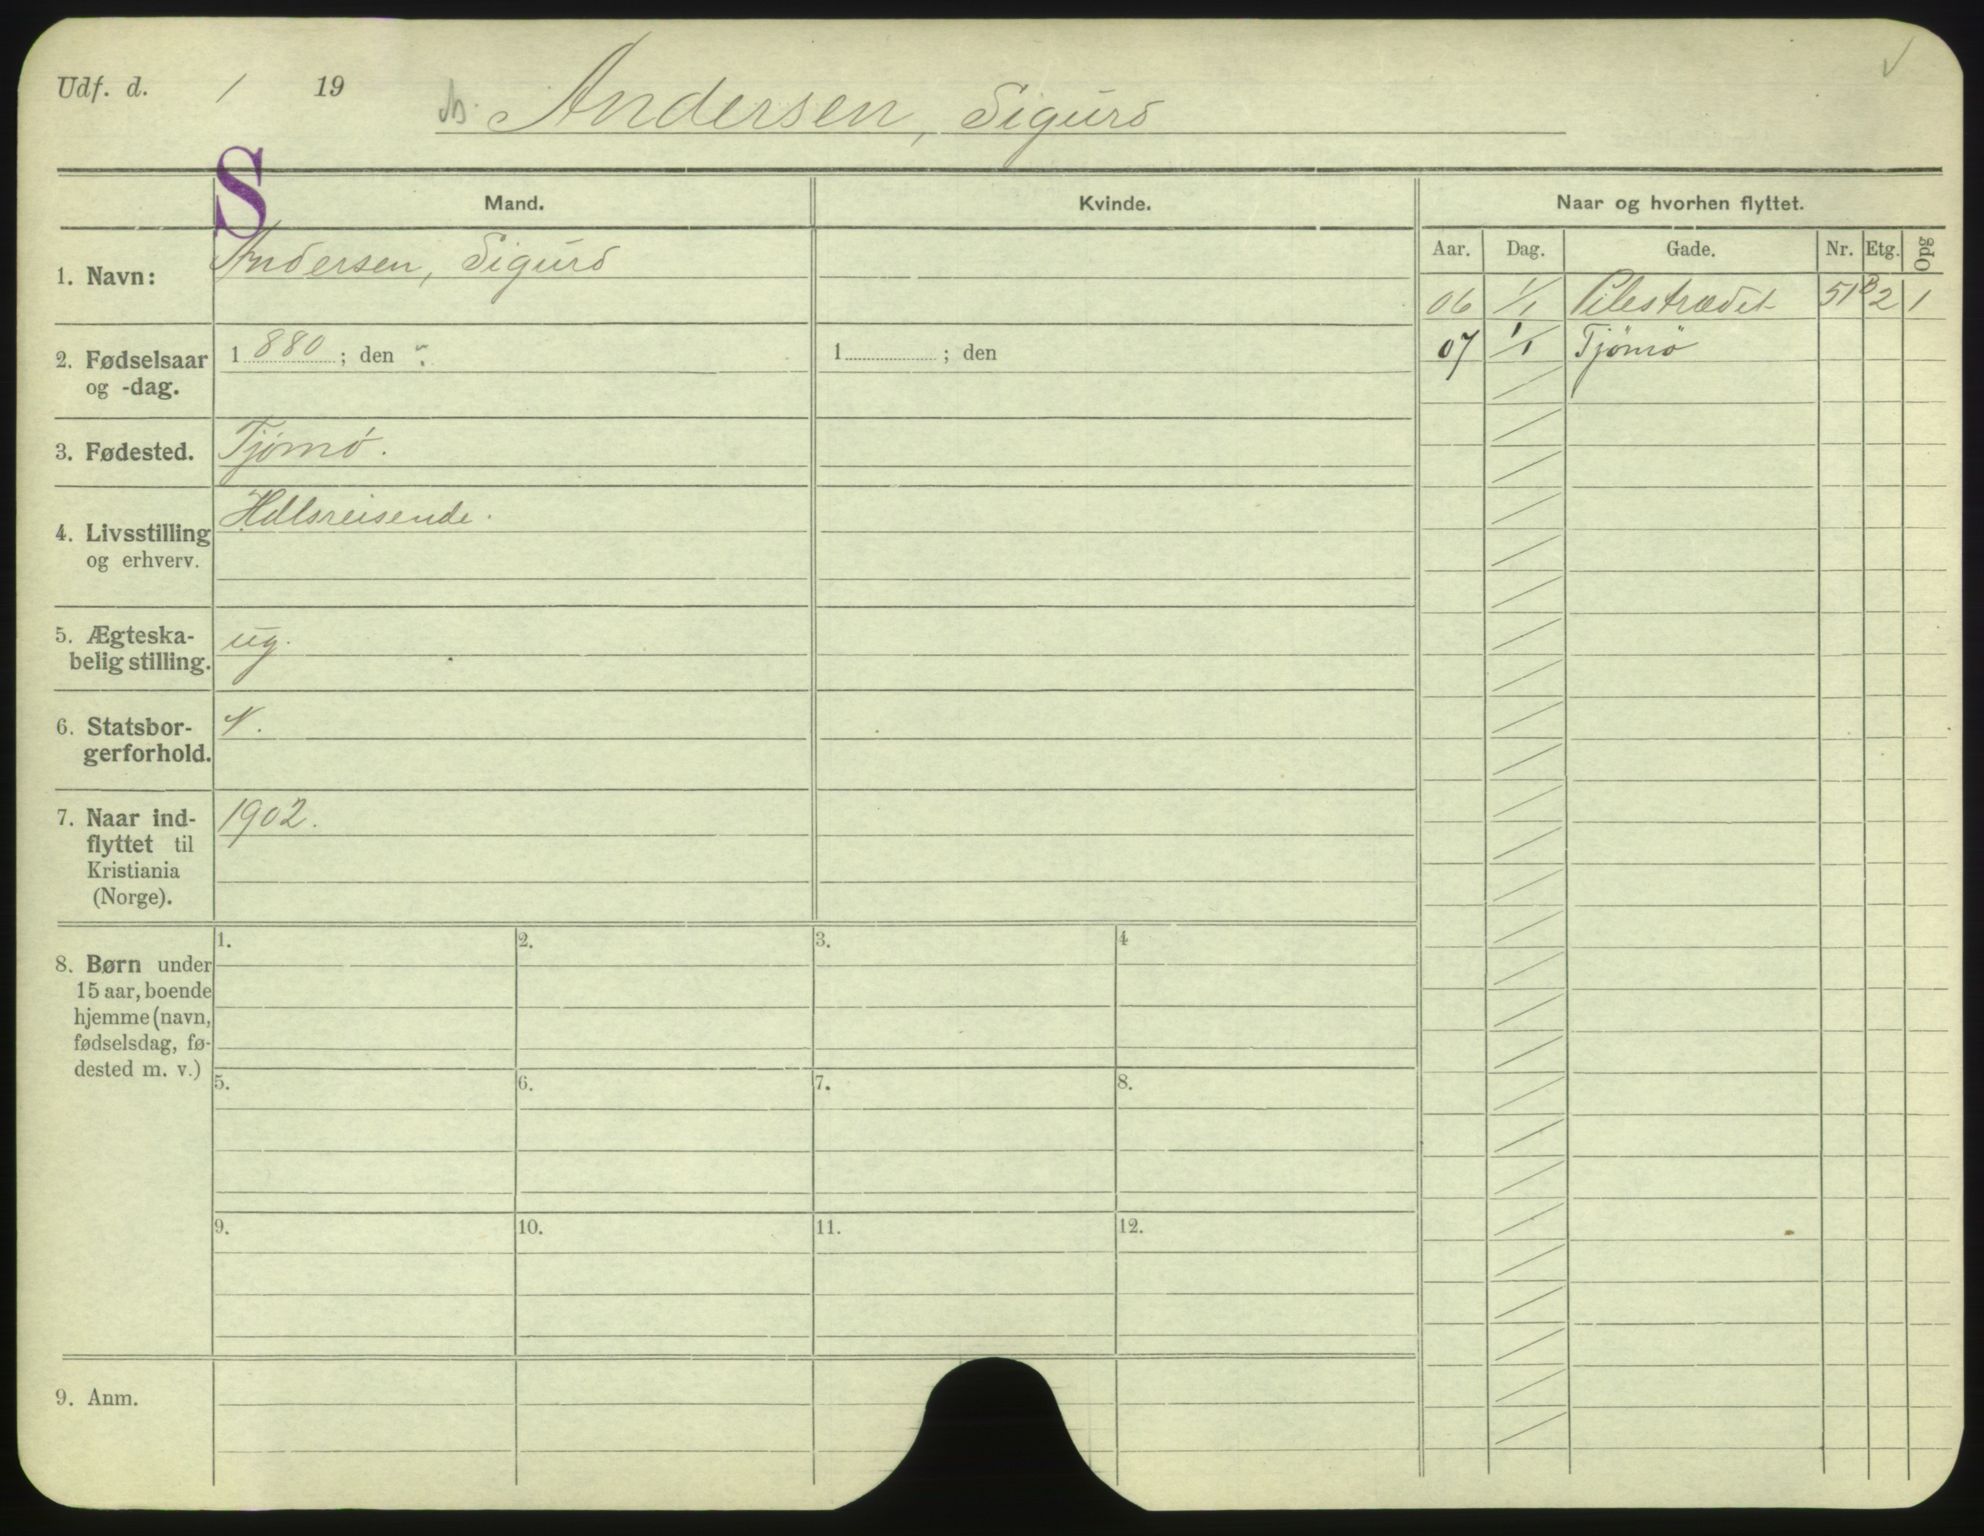 Udf. d. / 19
Andersen, Sigurd
S
Mand.
Kvinde.
Naar og hvorhen flyttet.
Aar. Dag. Gade. Nr. Etg. Opg
1. Navn:
Andersen, Sigurd
06 1/1 Pilestrædet 51B 2 1
07 1/1 Tjømø
2. Fødselsaar
og -dag.
1 880 ; den
1 ; den
3. Fødested.
Tjømø.
4. Livsstilling
og erhverv.
Hdlsreisende.
5. Ægteska-
belig stilling.
ug.
6. Statsbor-
gerforhold.
N.
7. Naar ind-
flyttet til
Kristiania
(Norge).
1902.
8. Børn under
15 aar, boende
hjemme (navn,
fødselsdag, fø-
dested m. v.)
1. 2. 3. 4
5. 6. 7. 8.
9. 10. 11. 12.
9. Anm.